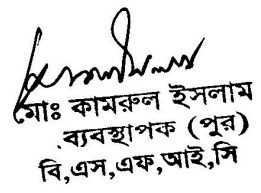 মোঃ কামরুল ইসলাম
ব্যবস্থাপক (পুর)
বি,এস,এফ,আই,সি